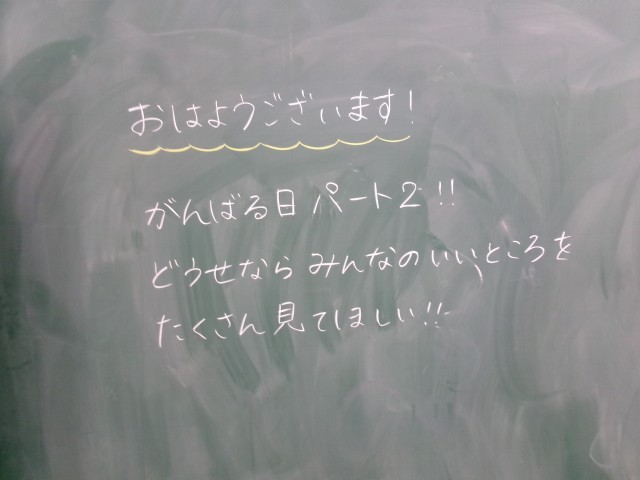 おはようございます!
がんばる日 パート2!!
どうせなら みんなのいいところを
たくさん見てほしい!!